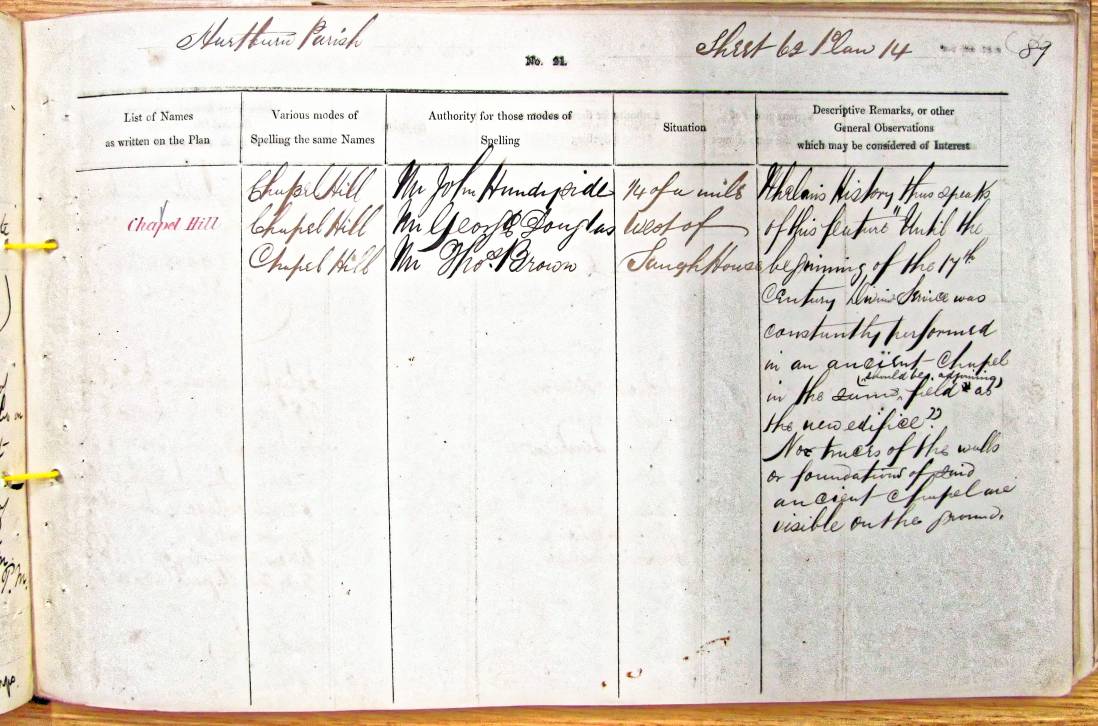 Hartburn Parish
Sheet 62 Plan 14
89
No. 21.
List of Names
as written on the Plan
Various modes of
Spelling the same Names
Authority for those modes of
Spelling
Situation
Descriptive Remarks, or other
General Observations
which may be considered of Interest
Chapel Hill
Chapel Hill
Chapel Hill
Chapel Hill
Mr John Handyside
Mr George Douglas
Mr Thos. Brown
1/4 of a mile
West of
Saugh House
Whelans History thus speaks
of this feature "Until the
beginning of the 17th
Century Divine Service was
constantly performed
in an ancient Chapel
(should be, adjoining)
in the same, field as
the new edifice".
No traces of the walls
or foundations of said
ancient chapel are
visible on the ground.
P.M.